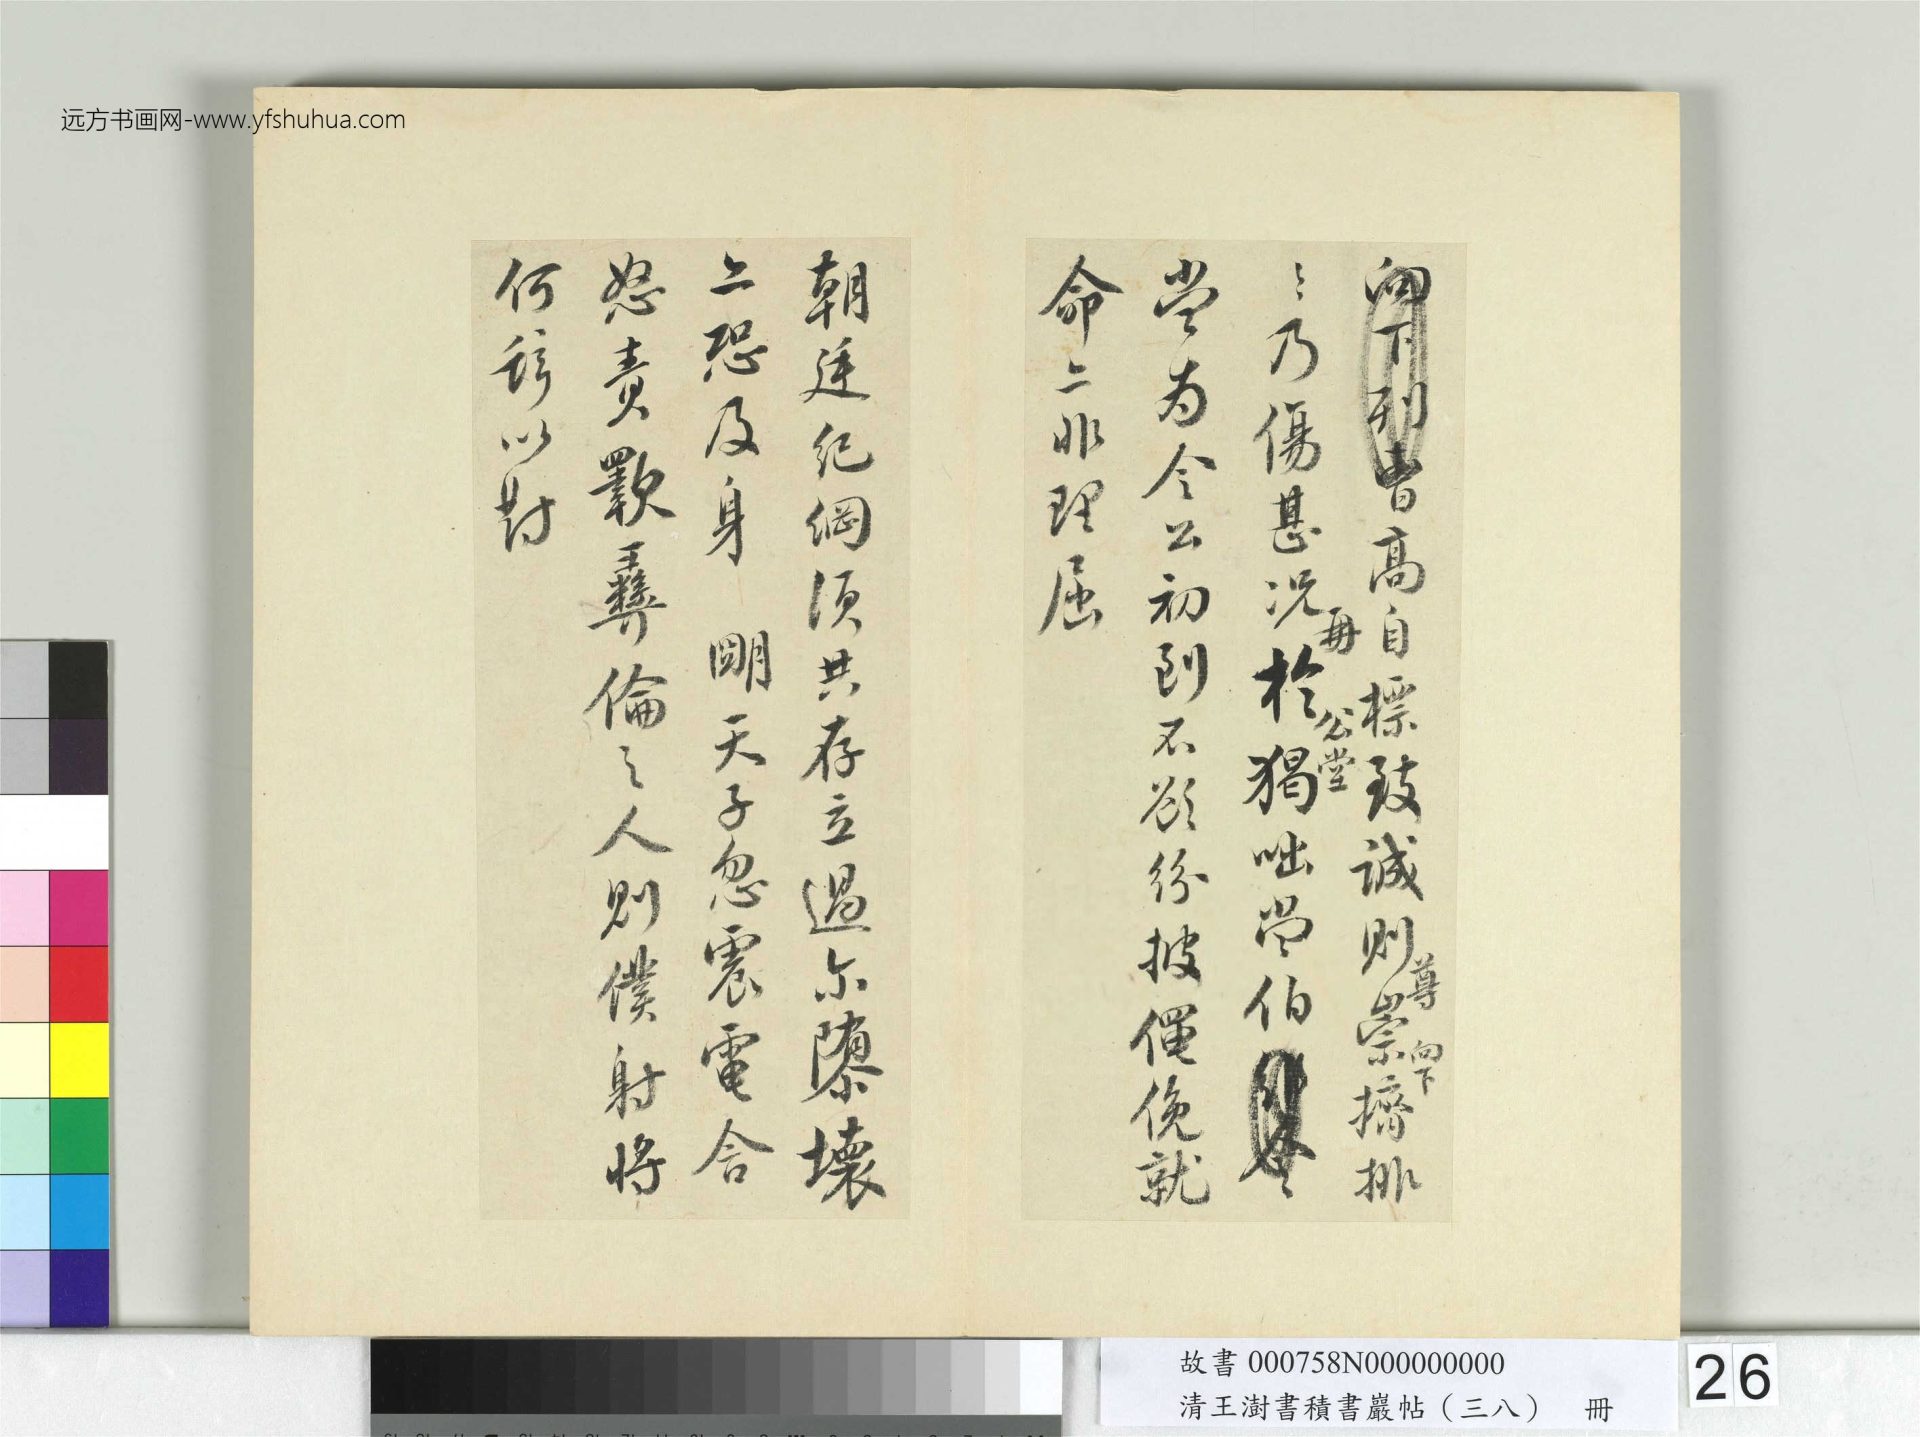 远方书画网-www.yfshuhua.com
向下皆高自標致誠則尊崇向下擠排
乃傷甚況再於公堂猲咄常伯
當為令公初到不欲紛披僶俛就
命亦非理屈
朝廷紀綱須共存立過尔隳壞
亦恐及身 明天子忽震電含
怒責斁彝倫之人則僕射將
何辭以對
故書 000758N000000000
清王澍書積書巖帖（三八） 冊
26